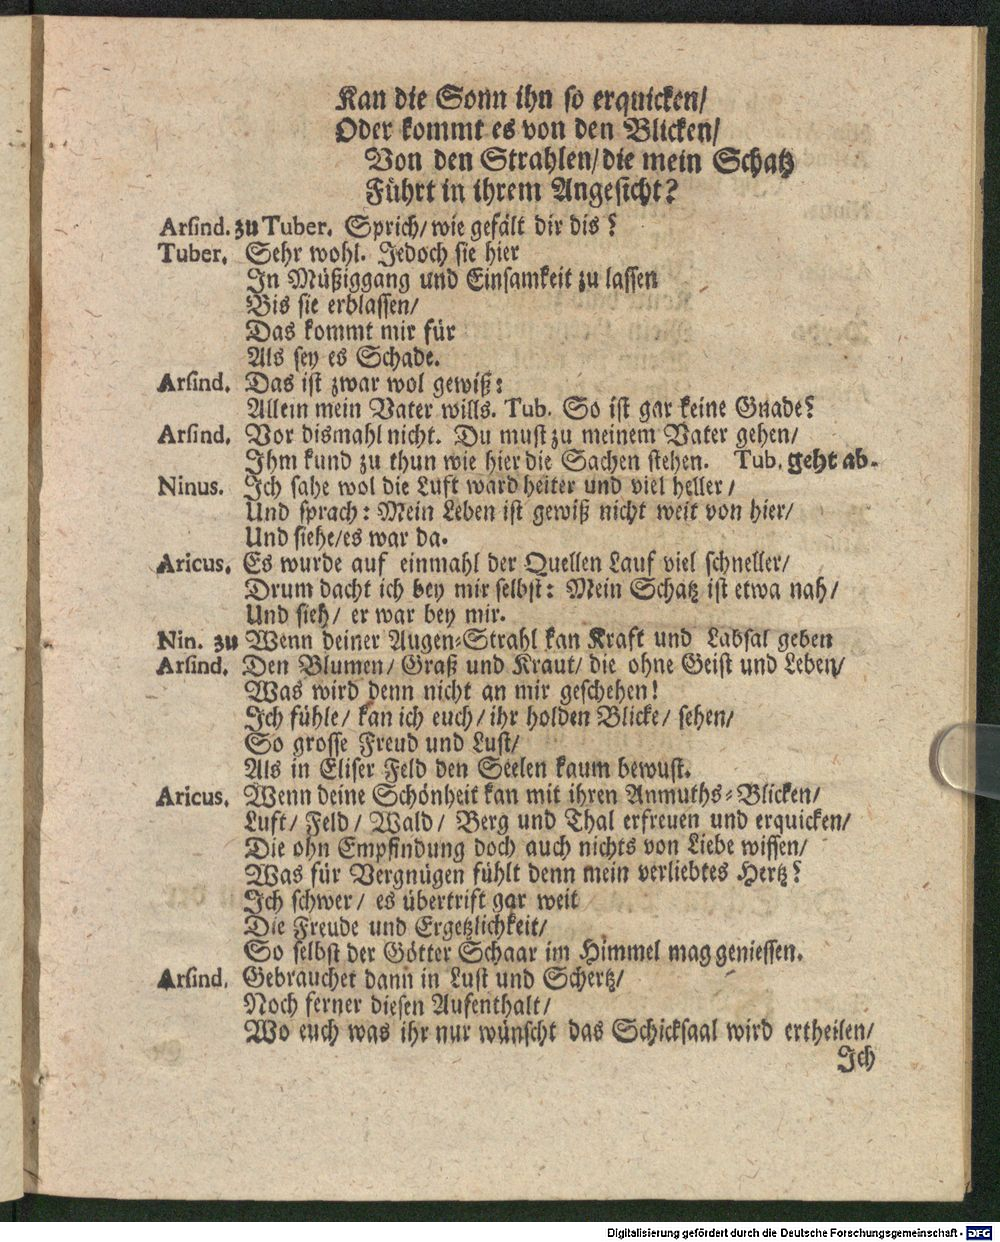 Kan die Sonn ihn so erquicken/
Oder kommt es von den Blicken/
Von den Strahlen/die mein Schatz
Führt in ihrem Angesicht?
Arsind. zu Tuber. Sprich/ wie gefält dir dis?
Tuber. Sehr wohl. Jedoch sie hier
In Müßiggang und Einsamkeit zu lassen
Bis sie erblassen/
Das kommt mir für
Als sey es Schade.
Arsind. Das ist zwar wol gewiß:
Allein mein Vater wills. Tub. So ist gar keine Gnade?
Arsind. Vor dismahl nicht. Du must zu meinem Vater gehen/
Ihm kund zu thun wie hier die Sachen stehen. Tub. geht ab.
Ninus. Ich sahe wol die Luft ward heiter und viel heller/
Und sprach: Mein Leben ist gewiß nicht weit von hier/
Und siehe/es war da.
Aricus. Es wurde auf einmahl der Quellen Lauf viel schneller/
Drum dacht ich bey mir selbst: Mein Schatz ist etwa nah/
Und sieh/ er war bey mir.
Nin. zu Wenn deiner Augen-Strahl kan Kraft und Labsal geben
Arsind. Den Blumen/ Graß und Kraut/ die ohne Geist und Leben/
Was wird denn nicht an mir geschehen!
Ich fühle/ kan ich euch/ ihr holden Blicke/ sehen/
So grosse Freud und Lust/
Als in Eliser Feld den Seelen kaum bewust.
Aricus. Wenn deine Schönheit kan mit ihren Anmuths-Blicken/
Luft/ Feld/ Wald/ Berg und Thal erfreuen und erquicken/
Die ohn Empfindung doch auch nichts von Liebe wissen/
Was für Vergnügen fühlt denn mein verliebtes Hertz?
Ich schwer/ es übertrift gar weit
Die Freude und Ergetzlichkeit/
So selbst der Götter Schaar im Himmel mag geniessen.
Arsind. Gebrauchet dann in Lust und Schertz/
Noch ferner diesen Aufenthalt/
Wo euch was ihr nur wünscht das Schicksaal wird ertheilen/
Ich
Digitalisierung gefördert durch die Deutsche Forschungsgemeinschaft - DFG